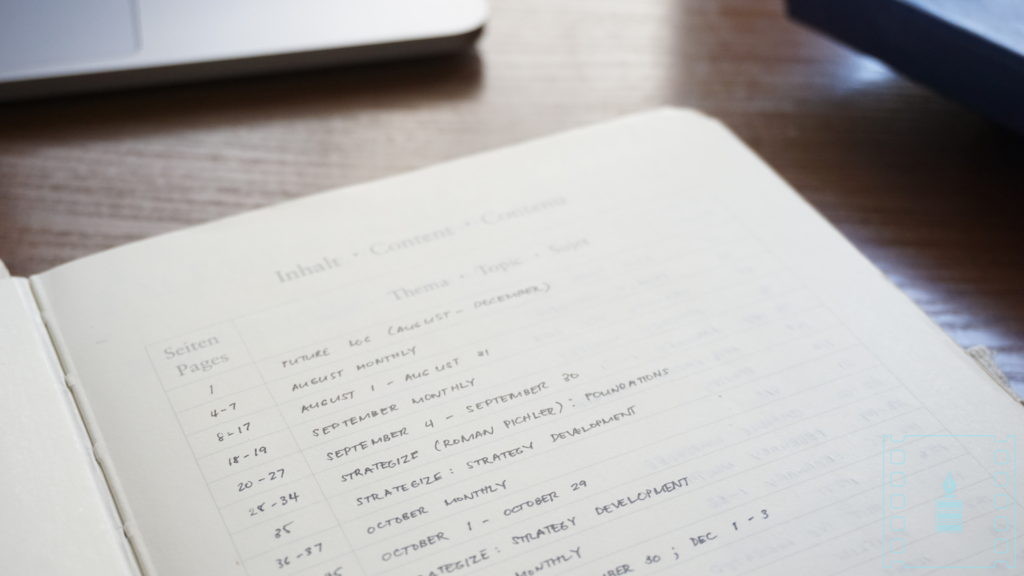 Inhalt · Content · Contenu
Seiten Thema · Topic · Sujet
Pages
1 FUTURE LOG (AUGUST - DECEMBER)
4-7 AUGUST MONTHLY
8-17 AUGUST 1 - AUGUST 31
18-19 SEPTEMBER MONTHLY
20-27 SEPTEMBER 4 - SEPTEMBER 30
28-34 STRATEGIZE (ROMAN PICHLER): FOUNDATIONS
35 STRATEGIZE: STRATEGY DEVELOPMENT
36-37 OCTOBER MONTHLY
OCTOBER 1 - OCTOBER 29
ATEGIZE: STRATEGY DEVELOPMENT
MONTHLY
BER 30; DEC 1-3